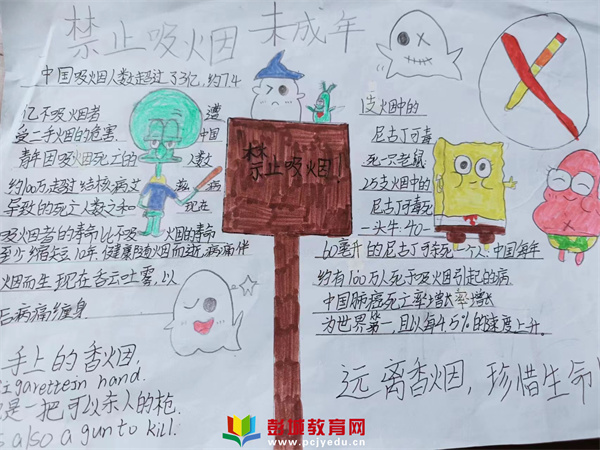 禁止吸烟 未成年
中国吸烟人数超过3.3亿,约7.4
亿不吸烟者 遭
受二手烟的危害. 中国
青年因吸烟死亡的 人数
约100万超过结核病艾滋病
导致的死亡人数之和 现在
吸烟者的寿命比不吸烟的寿命
至少缩短10年,健康随烟而逝,病痛伴
烟而生现在吞云吐雾,以
后病痛缠身
手上的香烟.
igarettein hand.
是一把可以杀人的枪
also a gun to kill.
禁止吸烟!
1支火烟中的
尼古丁可毒
死一只老鼠
25支火烟中的
尼古丁可毒死
一头牛.40-
60毫升的尼古丁可杀死一个人.中国每年
约有100万人死于吸烟引起的病
中国肺癌死亡率增长率增长
为世界第一,且以每年4.5%的速度上升.
远离香烟,珍惜生命!
彭璟教育网
www.pcjyedu.cn